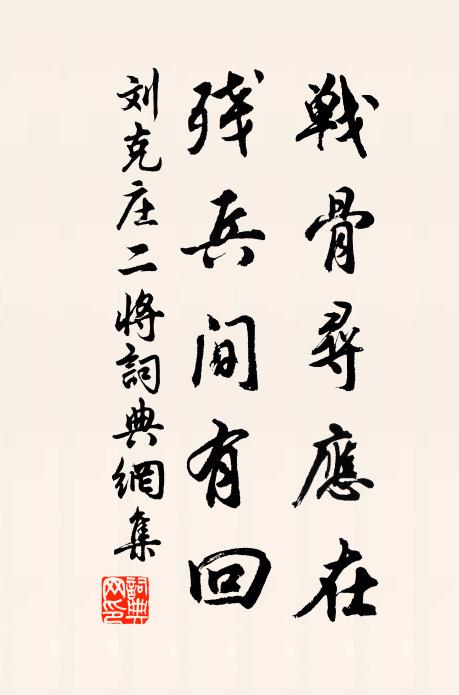 戦骨尋應在
残兵間有回
刘克庄二将詞典網集
詞典网印